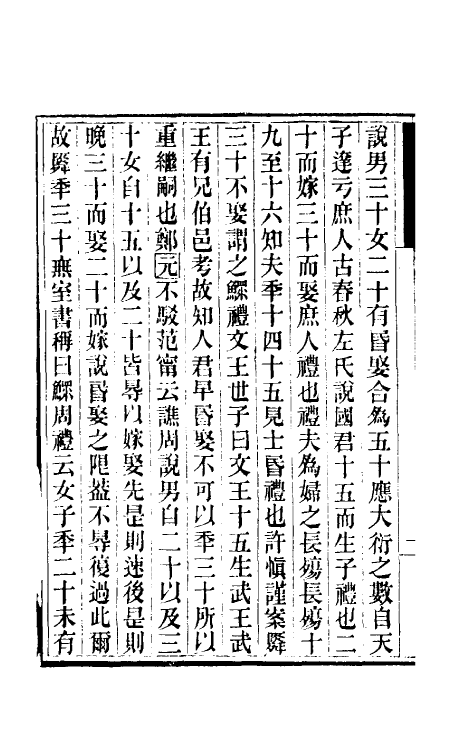 說男三十女二十有昏娶合為五十應大衍之數自天
子達亏庶人古春秋左氏說國君十五而生子禮也二
十而嫁三十而娶庶人禮也禮夫為婦之長殤長殤十
九至十六知夫秊十四十五見士昏禮也許慎謹案舜
三十不娶謂之鰥禮文王世子曰文王十五生武王武
王有兄伯邑考故知人君早昏娶不可以秊三十所以
重繼嗣也鄭元不駁范甯云譙周說男自二十以及三
十女自十五以及二十皆得以嫁娶先是則速後是則
晚三十而娶二十而嫁說昏娶之限葢不得復過此爾
故舜秊三十無室書稱曰鰥周禮云女子秊二十未有
二